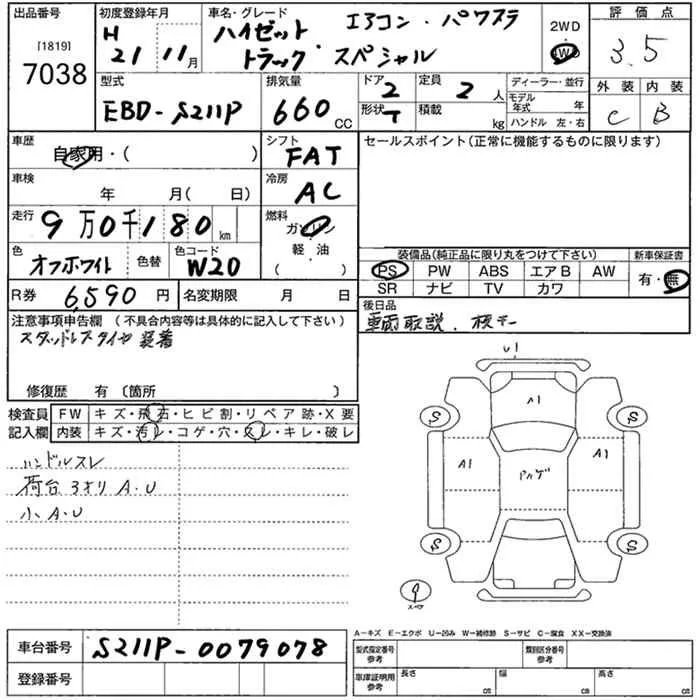 出品番号
[1819]
7038
初度登録年月
H 21年 11月
車名・グレード
エアコン・パワステ
ハイゼット
トラック スペシャル
2WD
4W
評価点
3.5
外装 内装
C B
型式
EBD-S211P
排気量
660 CC
ドア 2
形状 T
定員 2 人
積載 kg
ディーラー・並行
モデル年式 年
ハンドル 左・右
車歴
自家用・( )
シフト
FAT
セールスポイント(正常に機能するものに限ります)
車検
年 月( 日)
冷房
AC
走行
9万0千180 km
燃料
ガソリン
・
軽・油
( )
色
オフホワイト
色替
色コード
W20
装備品(純正品に限り丸をつけて下さい)
PS PW ABS エアB AW
SR ナビ TV カワ
新車保証書
有・無
R券 6,590 円
名変期限 月 日
後日品
車両取説.
注意事項申告欄 (不具合内容等は具体的に記入して下さい)
スタッドレスタイヤ装着
修復歴 有 〔箇所 〕
検査員
記入欄
FW キズ・飛石・ヒビ割・リペア跡・X要
内装 キズ・汚レ・コゲ・穴・スレ・キレ・破レ
ハンドルスレ
荷台3オリ A・U
小A・U
U1
A1
S S
A1 A1
S S
スペア
A-キズ E-エクボ U-凹み W-補修跡 S-サビ C-腐食 XX-交換済
車台番号 S211P-0079078
登録番号
型式指定番号
参考
類別区分番号
参考
車庫証明用
参考
長さ cm
幅 cm
高さ cm